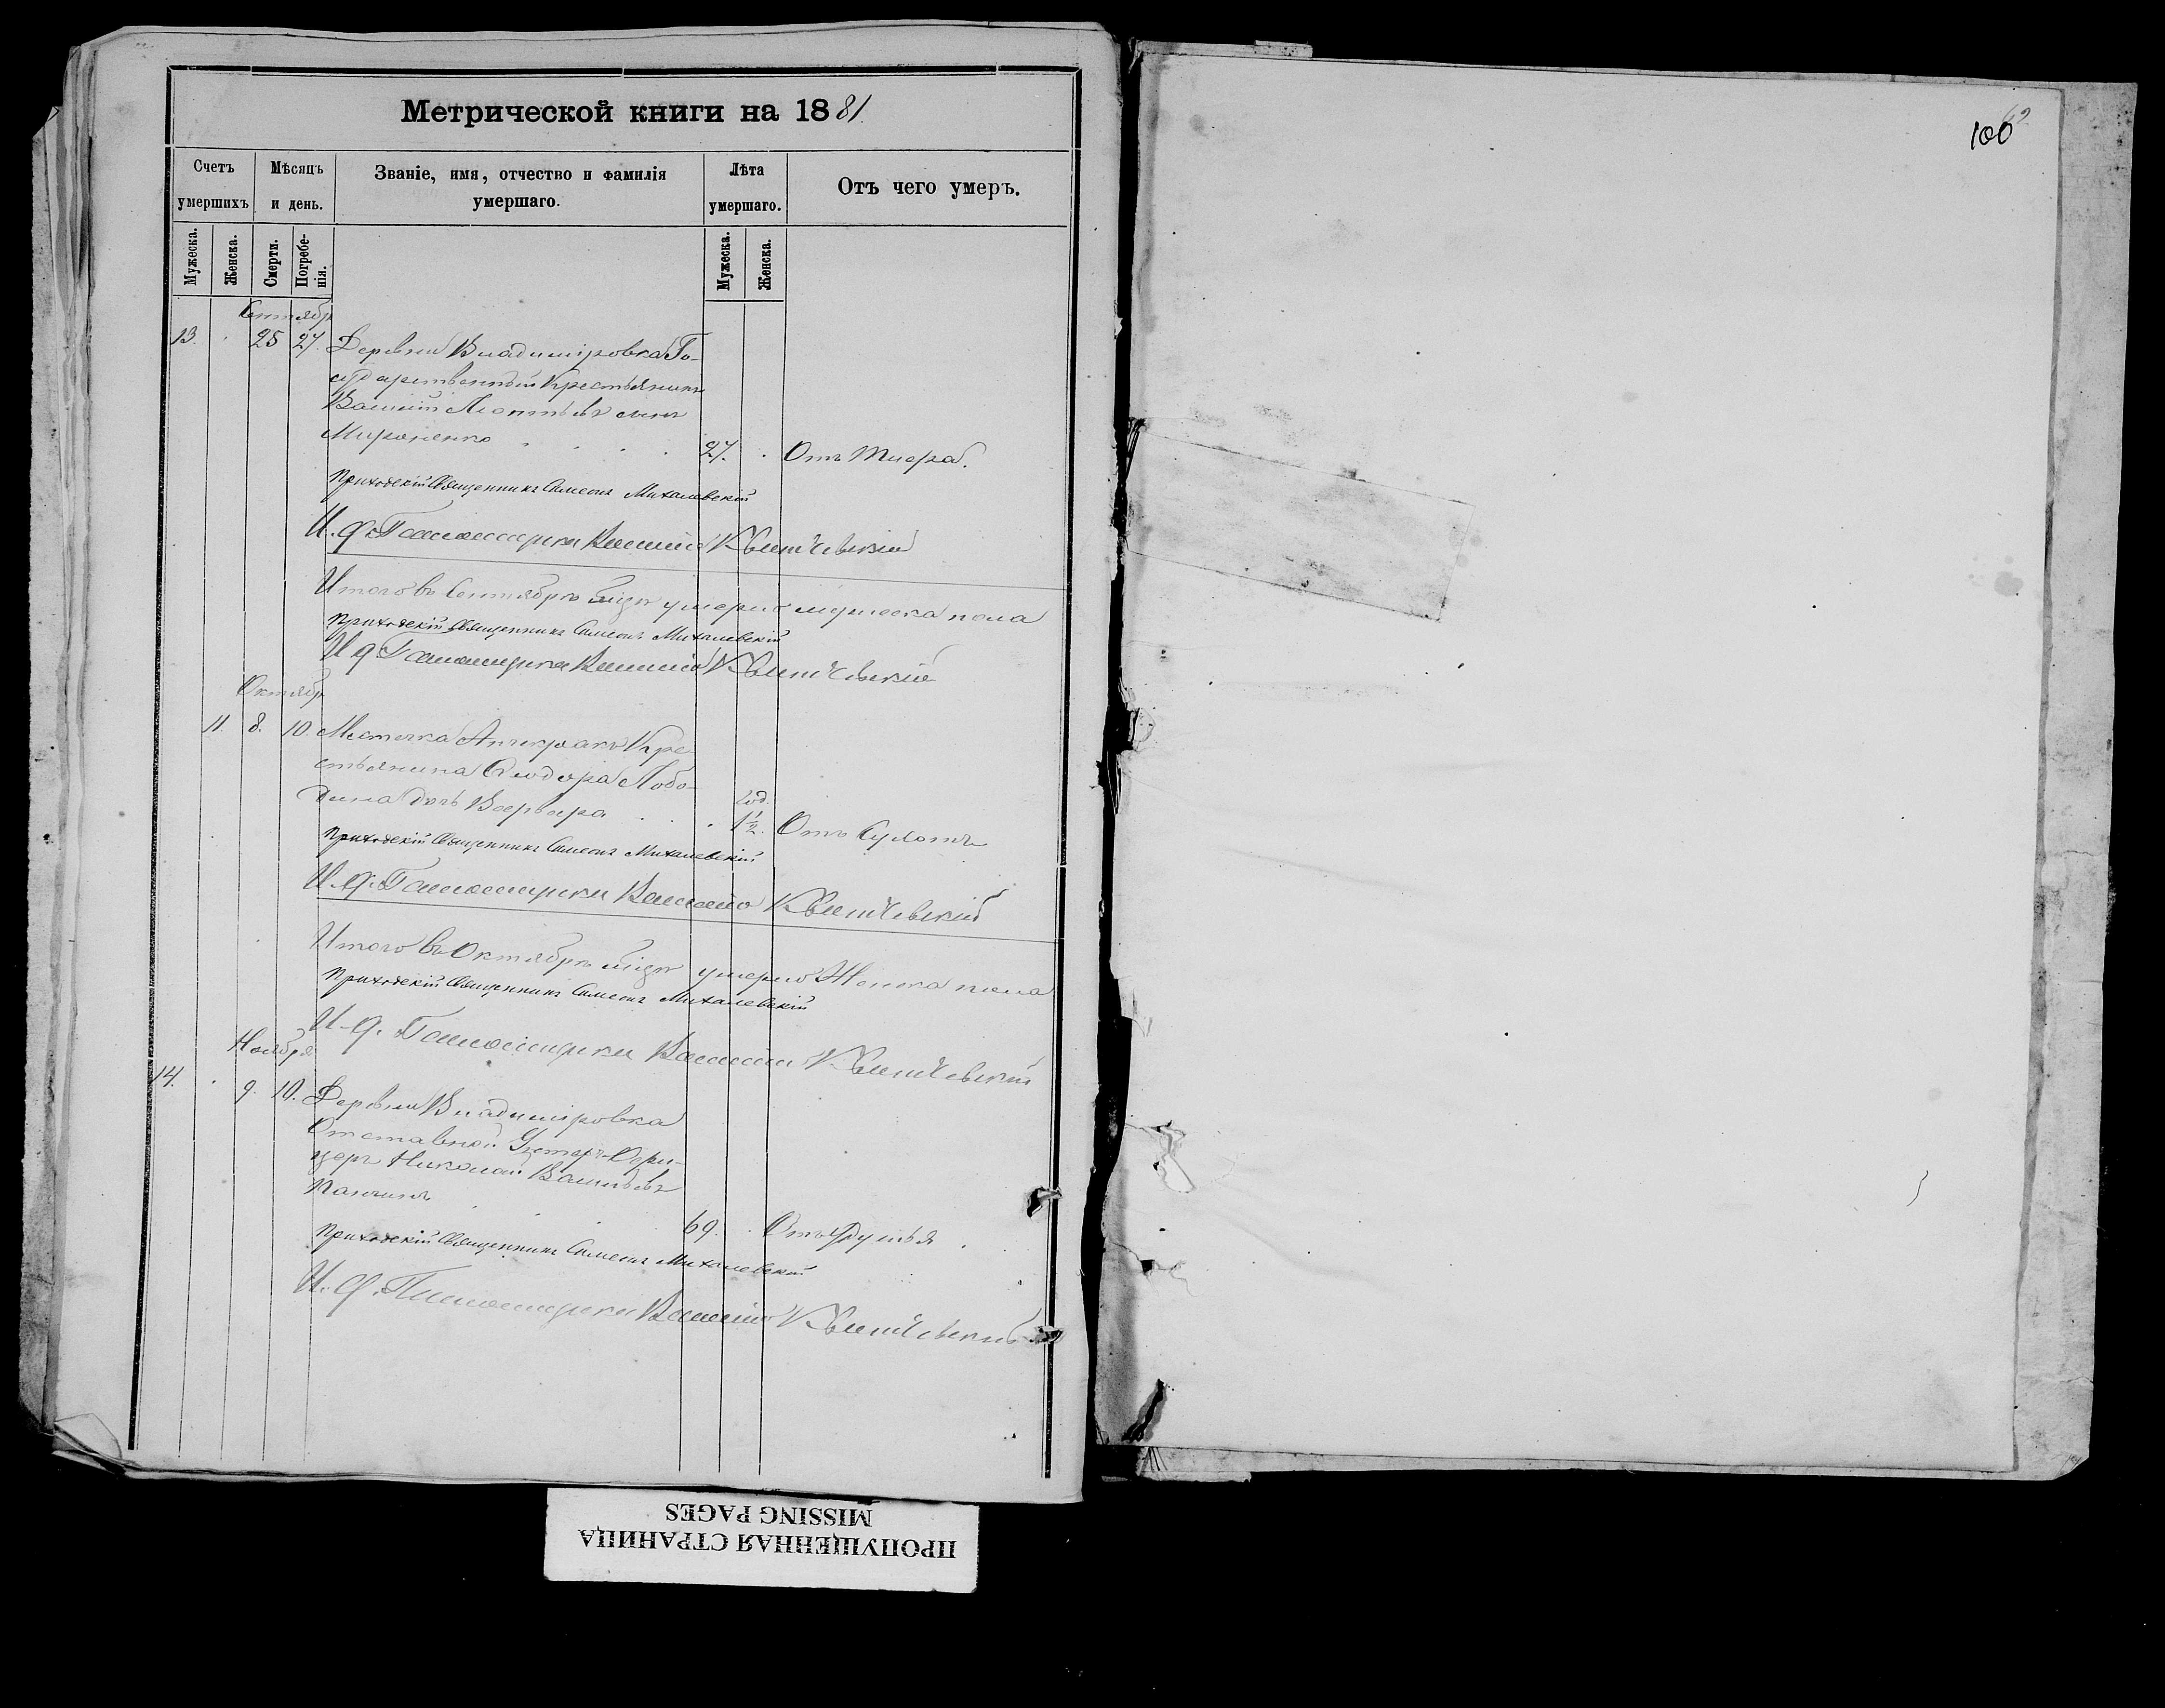 Метрической книги на 1881.
Счетъ умершихъ
Мѣсяцъ и день.
Званіе, имя, отчество и фамилія умершаго.
Лѣта умершаго.
Отъ чего умеръ.
Мужеска.
Женска.
Смерти.
Погребенія.
Мужеска.
Женска.
Сентябр
13. 25 27. Деревни Владиміровка Го-
сударственный Крестьянинъ
Василій Леонтьевъ сынъ
Мироненко 27. Отъ
Приходскій Священникъ Симеонъ Михалевскій
И. д. Псаломщика Василій
Итого въ Сентябрѣ мцѣ умерло мужеска пола
Приходскій Священникъ Симеонъ Михалевскій
И д Псаломщика Василій
Октябр
11. 8. 10. Местечка Кре-
стьянина Ѳеодора Лобо-
дина дочь Варвара год. 1½. Отъ Сухотъ
Приходскій Священникъ Симеонъ Михалевскій
И. д. Псаломщика Василій
Итого въ Октябрѣ мцѣ умерло Женска пола
Приходскій Священникъ Симеонъ Михалевскій
И. д. Псаломщика Василій
Ноября
14. 9. 10. Деревни Владиміровка
Отставной Унтеръ-Офи-
церъ Николай Васильевъ
69. Отъ
Приходскій Священникъ Симеонъ Михалевскій
И. д. Псаломщика Василій
100
ПРОПУЩЕННАЯ СТРАНИЦА
MISSING PAGES